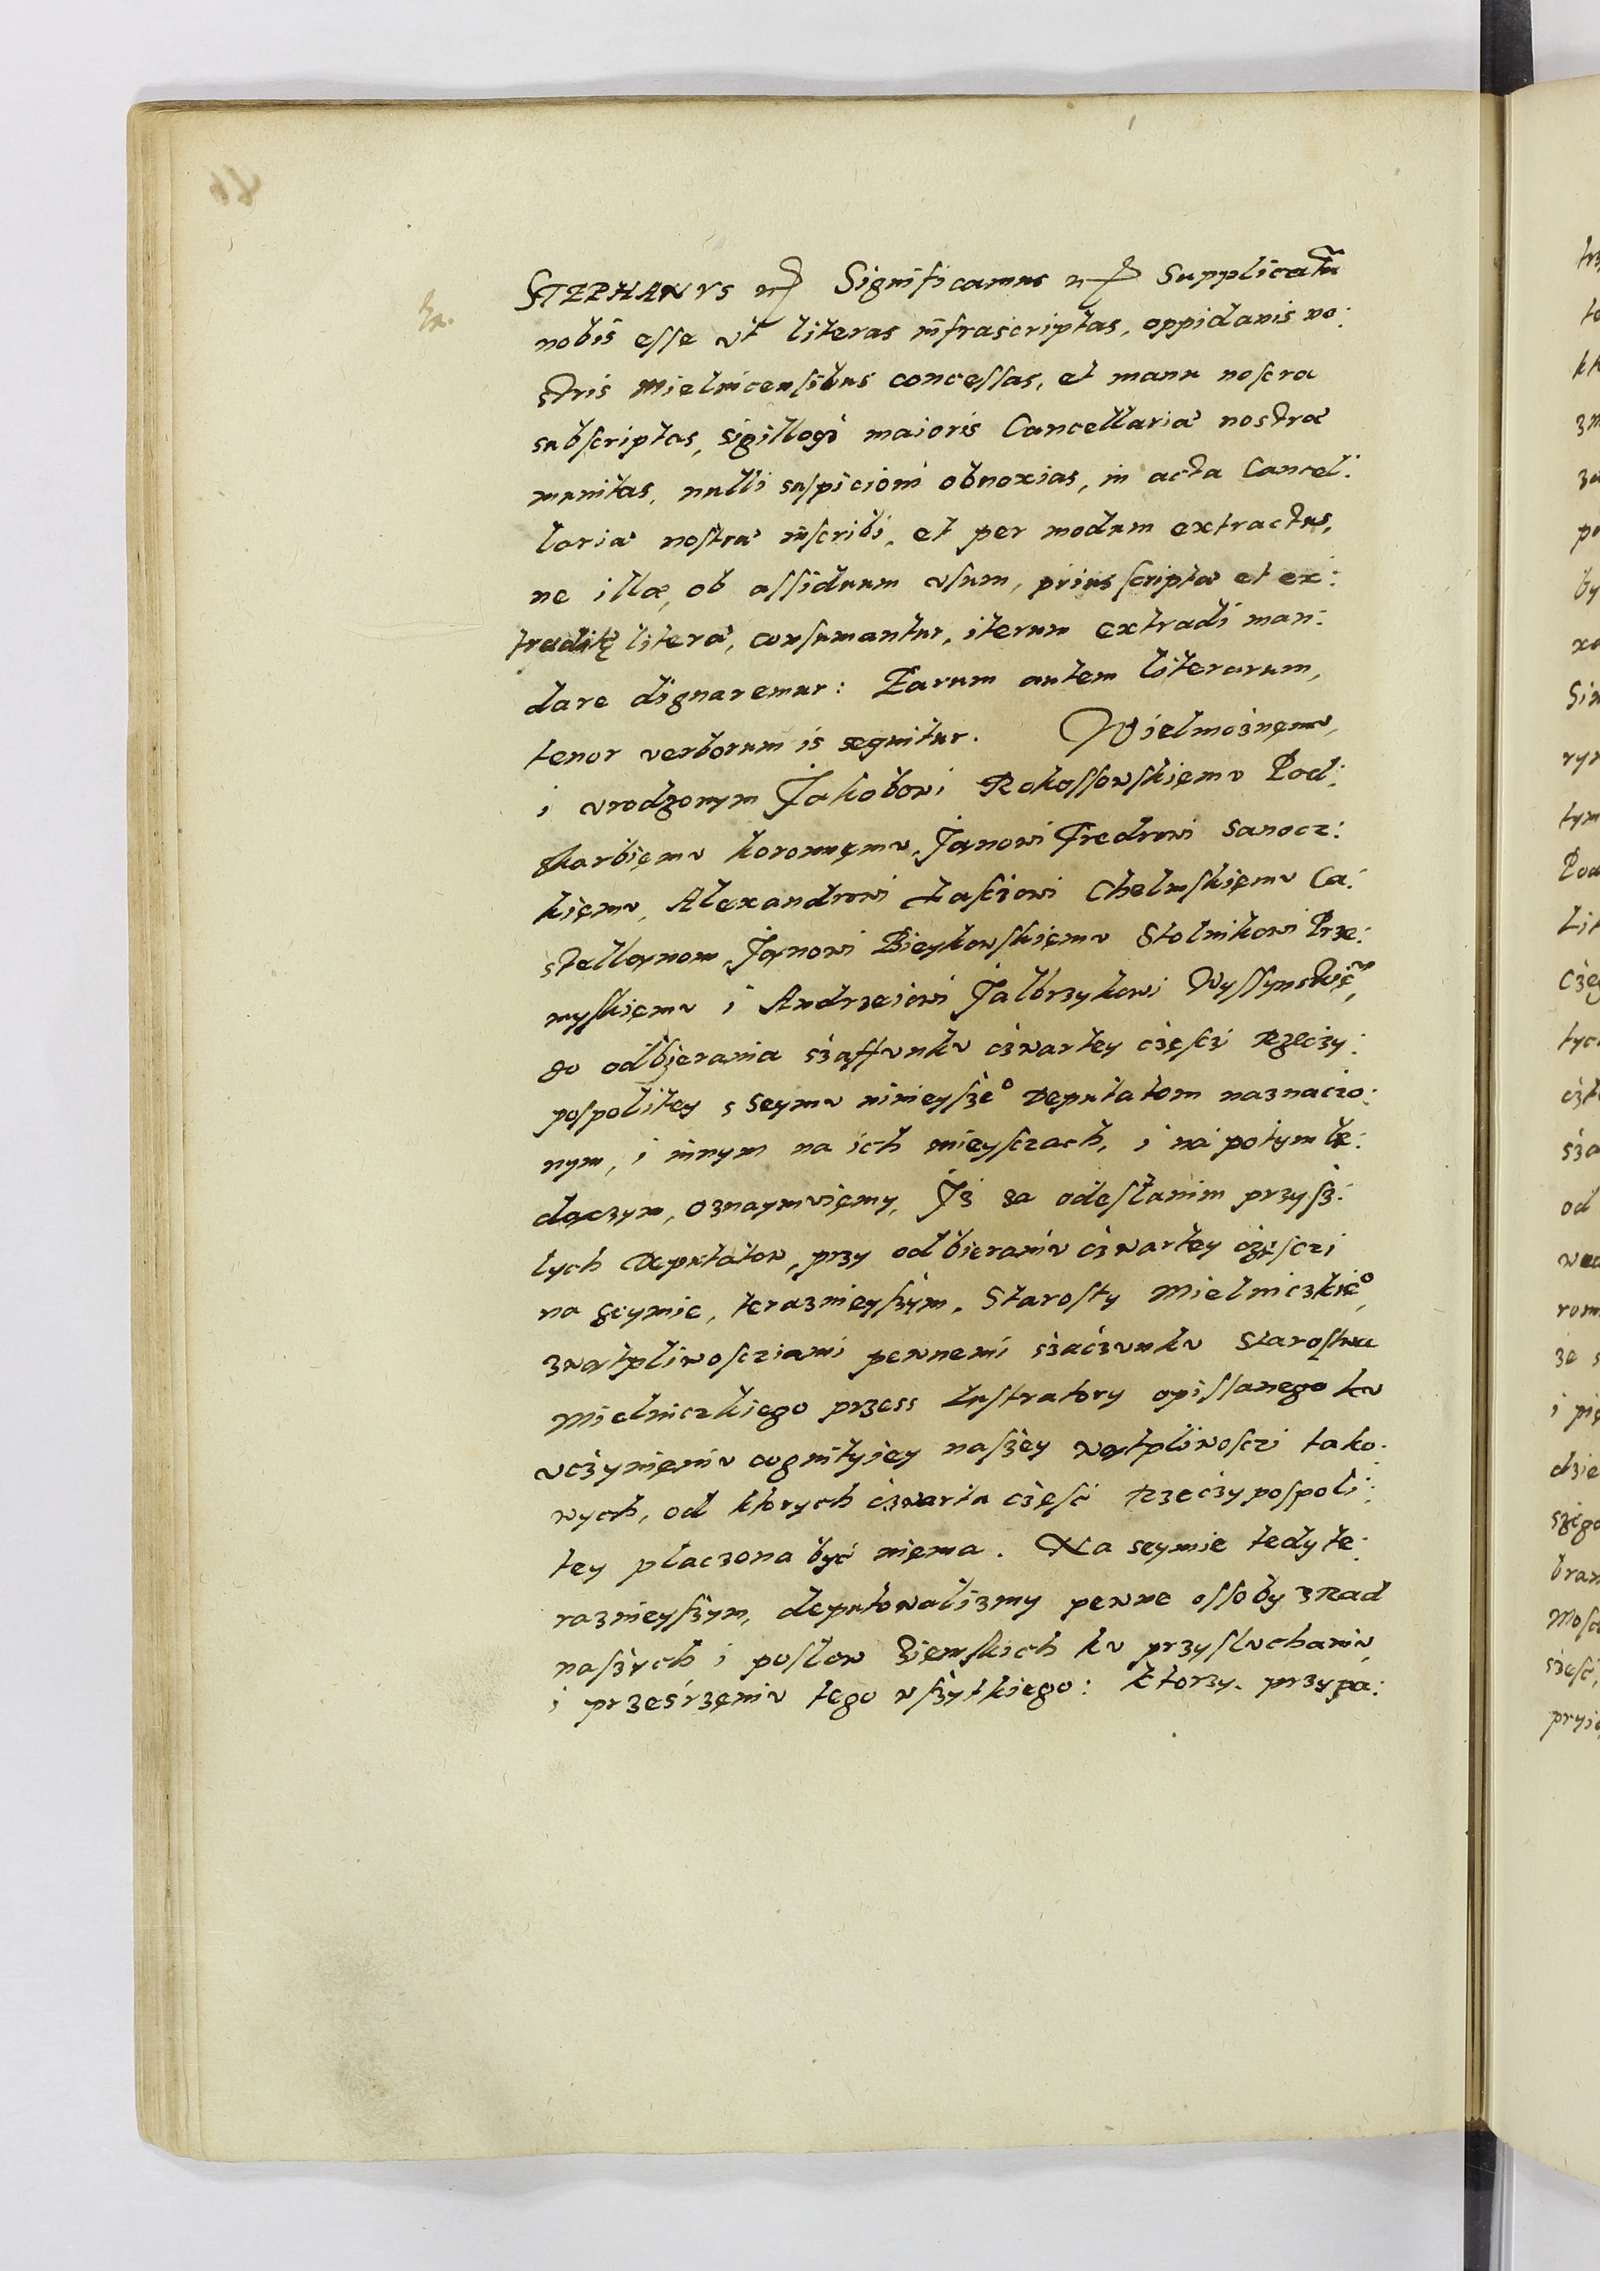 STEPHANVS Significamus Supplicatũ
nobis esse vt literas infrascriptas, oppidanis no:
stris Mielnicensibus concessas, et manu nostra
subscriptas, sigilloqȝ maioris Cancellariæ nostræ
munitas, nulli suspicioni obnoxias, in acta Cancel:
lariæ nostræ inscribi, et per modum extractus,
ne illæ, ob assiduum vsum, prius scriptæ et ex:
traditę literæ, consumantur, iterum extradi man:
dare dignaremur: Earum autem literarum,
tenor verborum is sequitur. Wielmożnęmv,
i vrodzonym Jakobowi Rokossowskięmv Pod:
skarbięmv koronnęmv, Janowi Fredrowi Sanocz:
kięmv, Alexandrowi Łasżowi Chelmskięmv Ca:
stellanom, Janowi Bieykowskięmv Stolnikowi Prze:
myskięmv i Andrzeiowi Jalbrzykowi Wyssynskięᵐ
do odbierania sżaffvnkv cżwartey cżęsci Rzecży:
pospolitey s Seymv ninieyszeº Deputatom naznaczo:
nym, i innym na ich mieysczach, i na potym bę:
dączym, oznaymvięmy, Iż za odesłanim przysż:
lych Deputatow, przy odbieraniv cżwartey cżęsczi
na seymie, teraznieyszym, Starosty Mielniczkieº,
zwątpliwosciami pewnemi sżacżvnkv Starostwa
Mielniczkiego przess Lustratory opissanego kv
vcżynięniv cognityiey naszey wątpliwosczi tako:
wych, od ktorych cżwarta cżęsć Rzecżypospoli:
tey placzona być niema. Na seymie tedy te:
raznieyszym, deputowalizmy pewne ossoby z Rad
naszych i poslow Ziemskich kv przyslvchaniv,
i przeźrzęniv tego wszytkiego: ktorzy przypa: